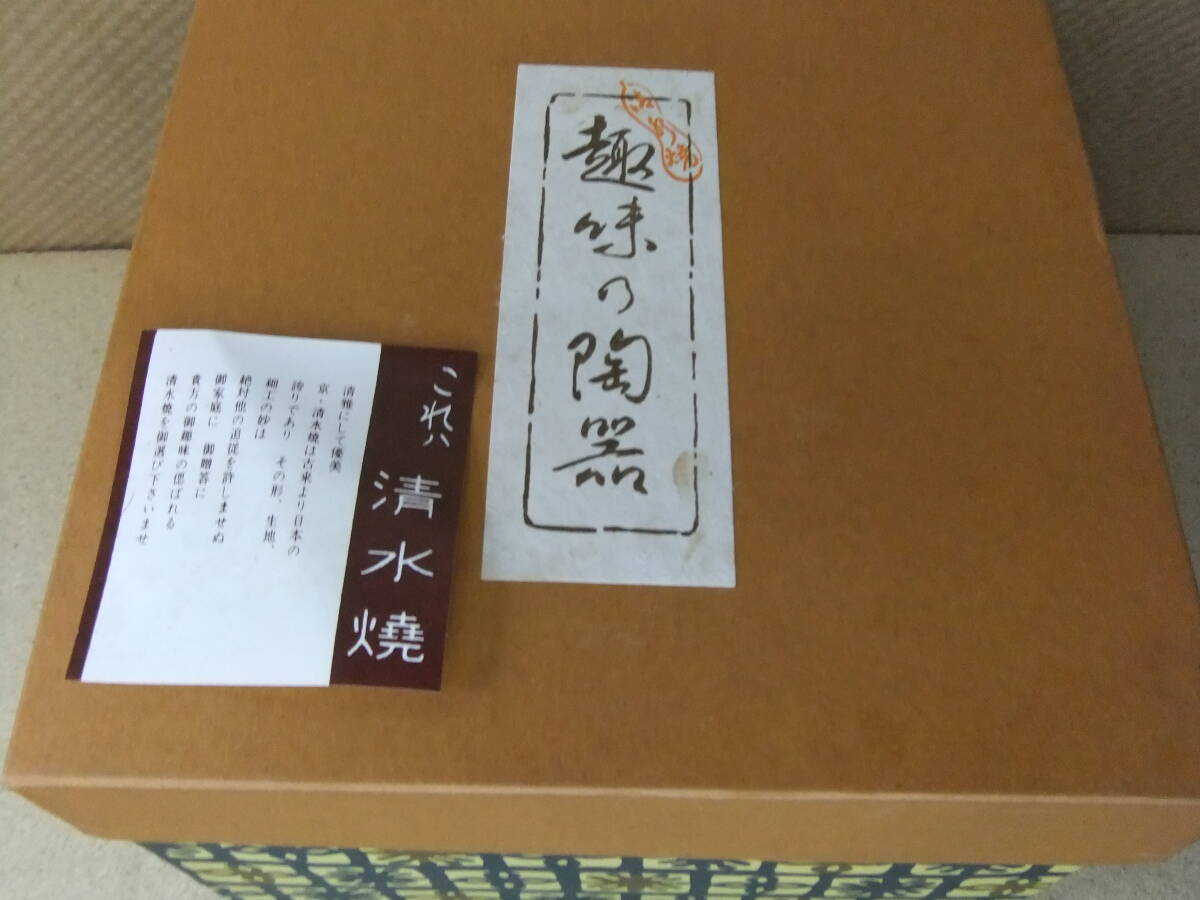 趣味の陶器
これハ
清水燒
清雅にして優美
京・清水焼は古来より日本の
誇りであり その形、生地、
細工の妙は
絶対他の追従を許しませぬ
御家庭に 御贈答に
貴方の御趣味の偲ばれる
清水焼を御選び下さいませ